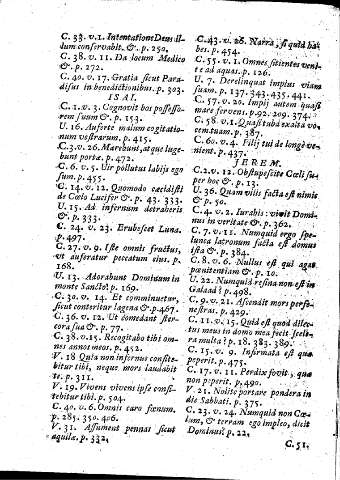 C. 33. v. 1. Intentatione Deus il-
lum conservabit. &. p. 250.
C. 38. v. 11. Da locum Medico
&. p. 272.
C. 40. v. 17. Gratia sicut Para-
disus in benedictionibus. p. 303.
ISAI.
C. 1. v. 3. Cognovit bos possesso-
rem suum & p. 153.
U. 16. Auferte malum cogitatio-
num vestrarum. p. 415.
C. 3. v. 26. Mærebunt, atque luge-
bunt portæ. p. 472.
C. 6. v. 5. Vir pollutus labijs ego
sum. p. 455.
C. 14. v. 12. Quomodo cecidisti
de Cœlo Lucifer & p. 43. 333.
U. 15. Ad infernum detraheris
&. p. 333.
C. 24. v. 23. Erubescet Luna.
p. 497.
C. 27. v. 9. Iste omnis fructus,
vt auferatur peccatum eius. p.
168.
U. 13. Adorabunt Dominum in
monte Sancto. p. 169.
C. 30. v. 14. Et comminuetur,
sicut conteritur lagena & p. 467.
C. 36. v. 12. Ut comedant ster-
cora sua & p. 77.
C. 38. v. 15. Recogitabo tibi om-
nes annos meos. p. 452.
V. 18 Quia non infernus confite-
bitur tibi, neque mors laudabit
te. p. 311.
V. 19. Vivens vivens ipse confi-
tebitur tibi. p. 504.
C. 40. v. 6. Omnis caro fœnum.
p. 285. 350. 406.
V. 31. Assument pennas sicut
aquilæ. p. 332.
C. 43. v. 26. Narra, si quid ha-
bes. p. 454.
C. 55. v. 1. Omnes sitientes veni-
te ad aquas. p. 126.
U. 7. Derelinquat impius viam
suam. p. 137. 343. 435. 441.
C. 57. v. 20. Impij autem quasi
mare fervens. p. 92. 209. 374.
C. 58. v. 1. Quasi tuba exalta vo-
cem tuam. p. 387.
C. 60. v. 4. Filij tui de longè ve-
nient. p. 437.
JEREM.
C. 2. v. 12. Obstupescite Cœli su-
per hoc & p. 13.
U. 36. Quam vilis facta est nimis
& p. 50.
C. 4. v. 2. Iurabis: vivit Domi-
nus in veritate & p. 362.
C. 7. v. 11. Numquid ergo spe-
lunca latronum facta est domus
ista & p. 384.
C. 8. v. 6. Nullus est qui agat
pænitentiam & p. 10.
U. 22. Numquid resina non est in
Galaad? p. 498.
C. 9. v. 21. Ascendit mors per fe-
nestras. p. 429.
C. 11. v. 15. Quid est quod dilec-
tus meus in domo mea fecit scele-
ra multa? p. 18. 383. 389.
C. 15. v. 9. Infirmata est quæ
peperit. p. 475.
C. 17. v. 11. Perdix fovit, quæ
non peperit. p, 490.
V. 21. Nolite portare pondera in
die Sabbati. p. 375.
C. 23. v. 24. Numquid non Cœ-
lum, & terram ego impleo, dicit
Dominus? p. 22,
C. 51.